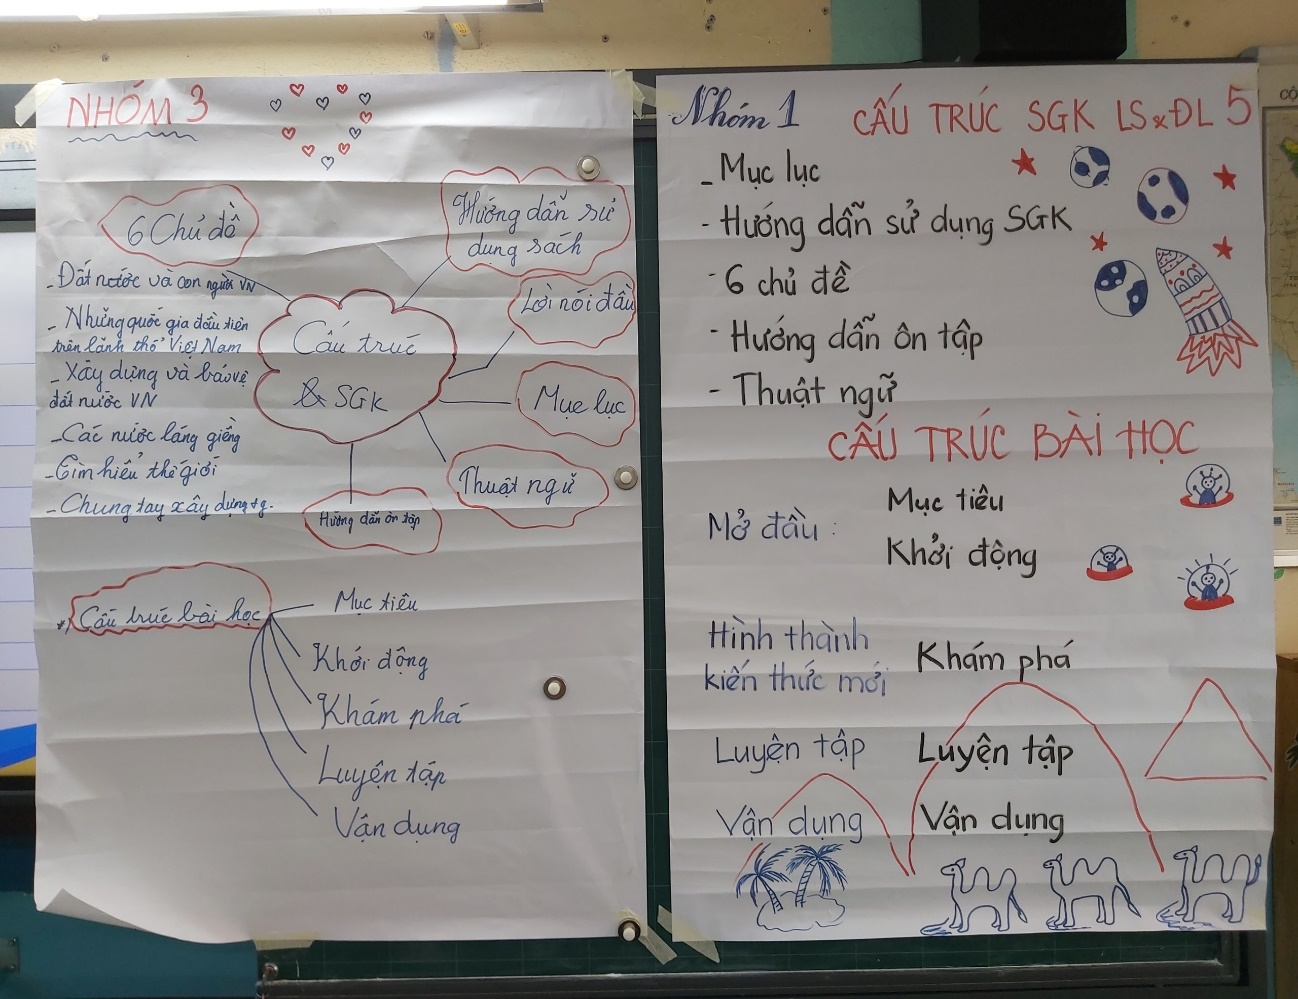 NHÓM 3
6 Chủ đề
- Đất nước và con người VN
- Những quốc gia đầu tiên
trên lãnh thổ Việt Nam
- Xây dựng và bảo vệ
đất nước VN
- Các nước láng giềng
- Tìm hiểu thế giới
- Chung tay xây dựng tg.
Cấu trúc
& SGK
Hướng dẫn sử
dụng sách
Lời nói đầu
Mục lục
Thuật ngữ
Hướng dẫn ôn tập
*) Cấu trúc bài học
Mục tiêu
Khởi động
Khám phá
Luyện tập
Vận dụng
Nhóm 1
CẤU TRÚC SGK LS&ĐL 5
- Mục lục
- Hướng dẫn sử dụng SGK
- 6 chủ đề
- Hướng dẫn ôn tập
- Thuật ngữ
CẤU TRÚC BÀI HỌC
Mở đầu :
Mục tiêu
Khởi động
Hình thành
kiến thức mới
Khám phá
Luyện tập
Luyện tập
Vận dụng
Vận dụng
CỘ